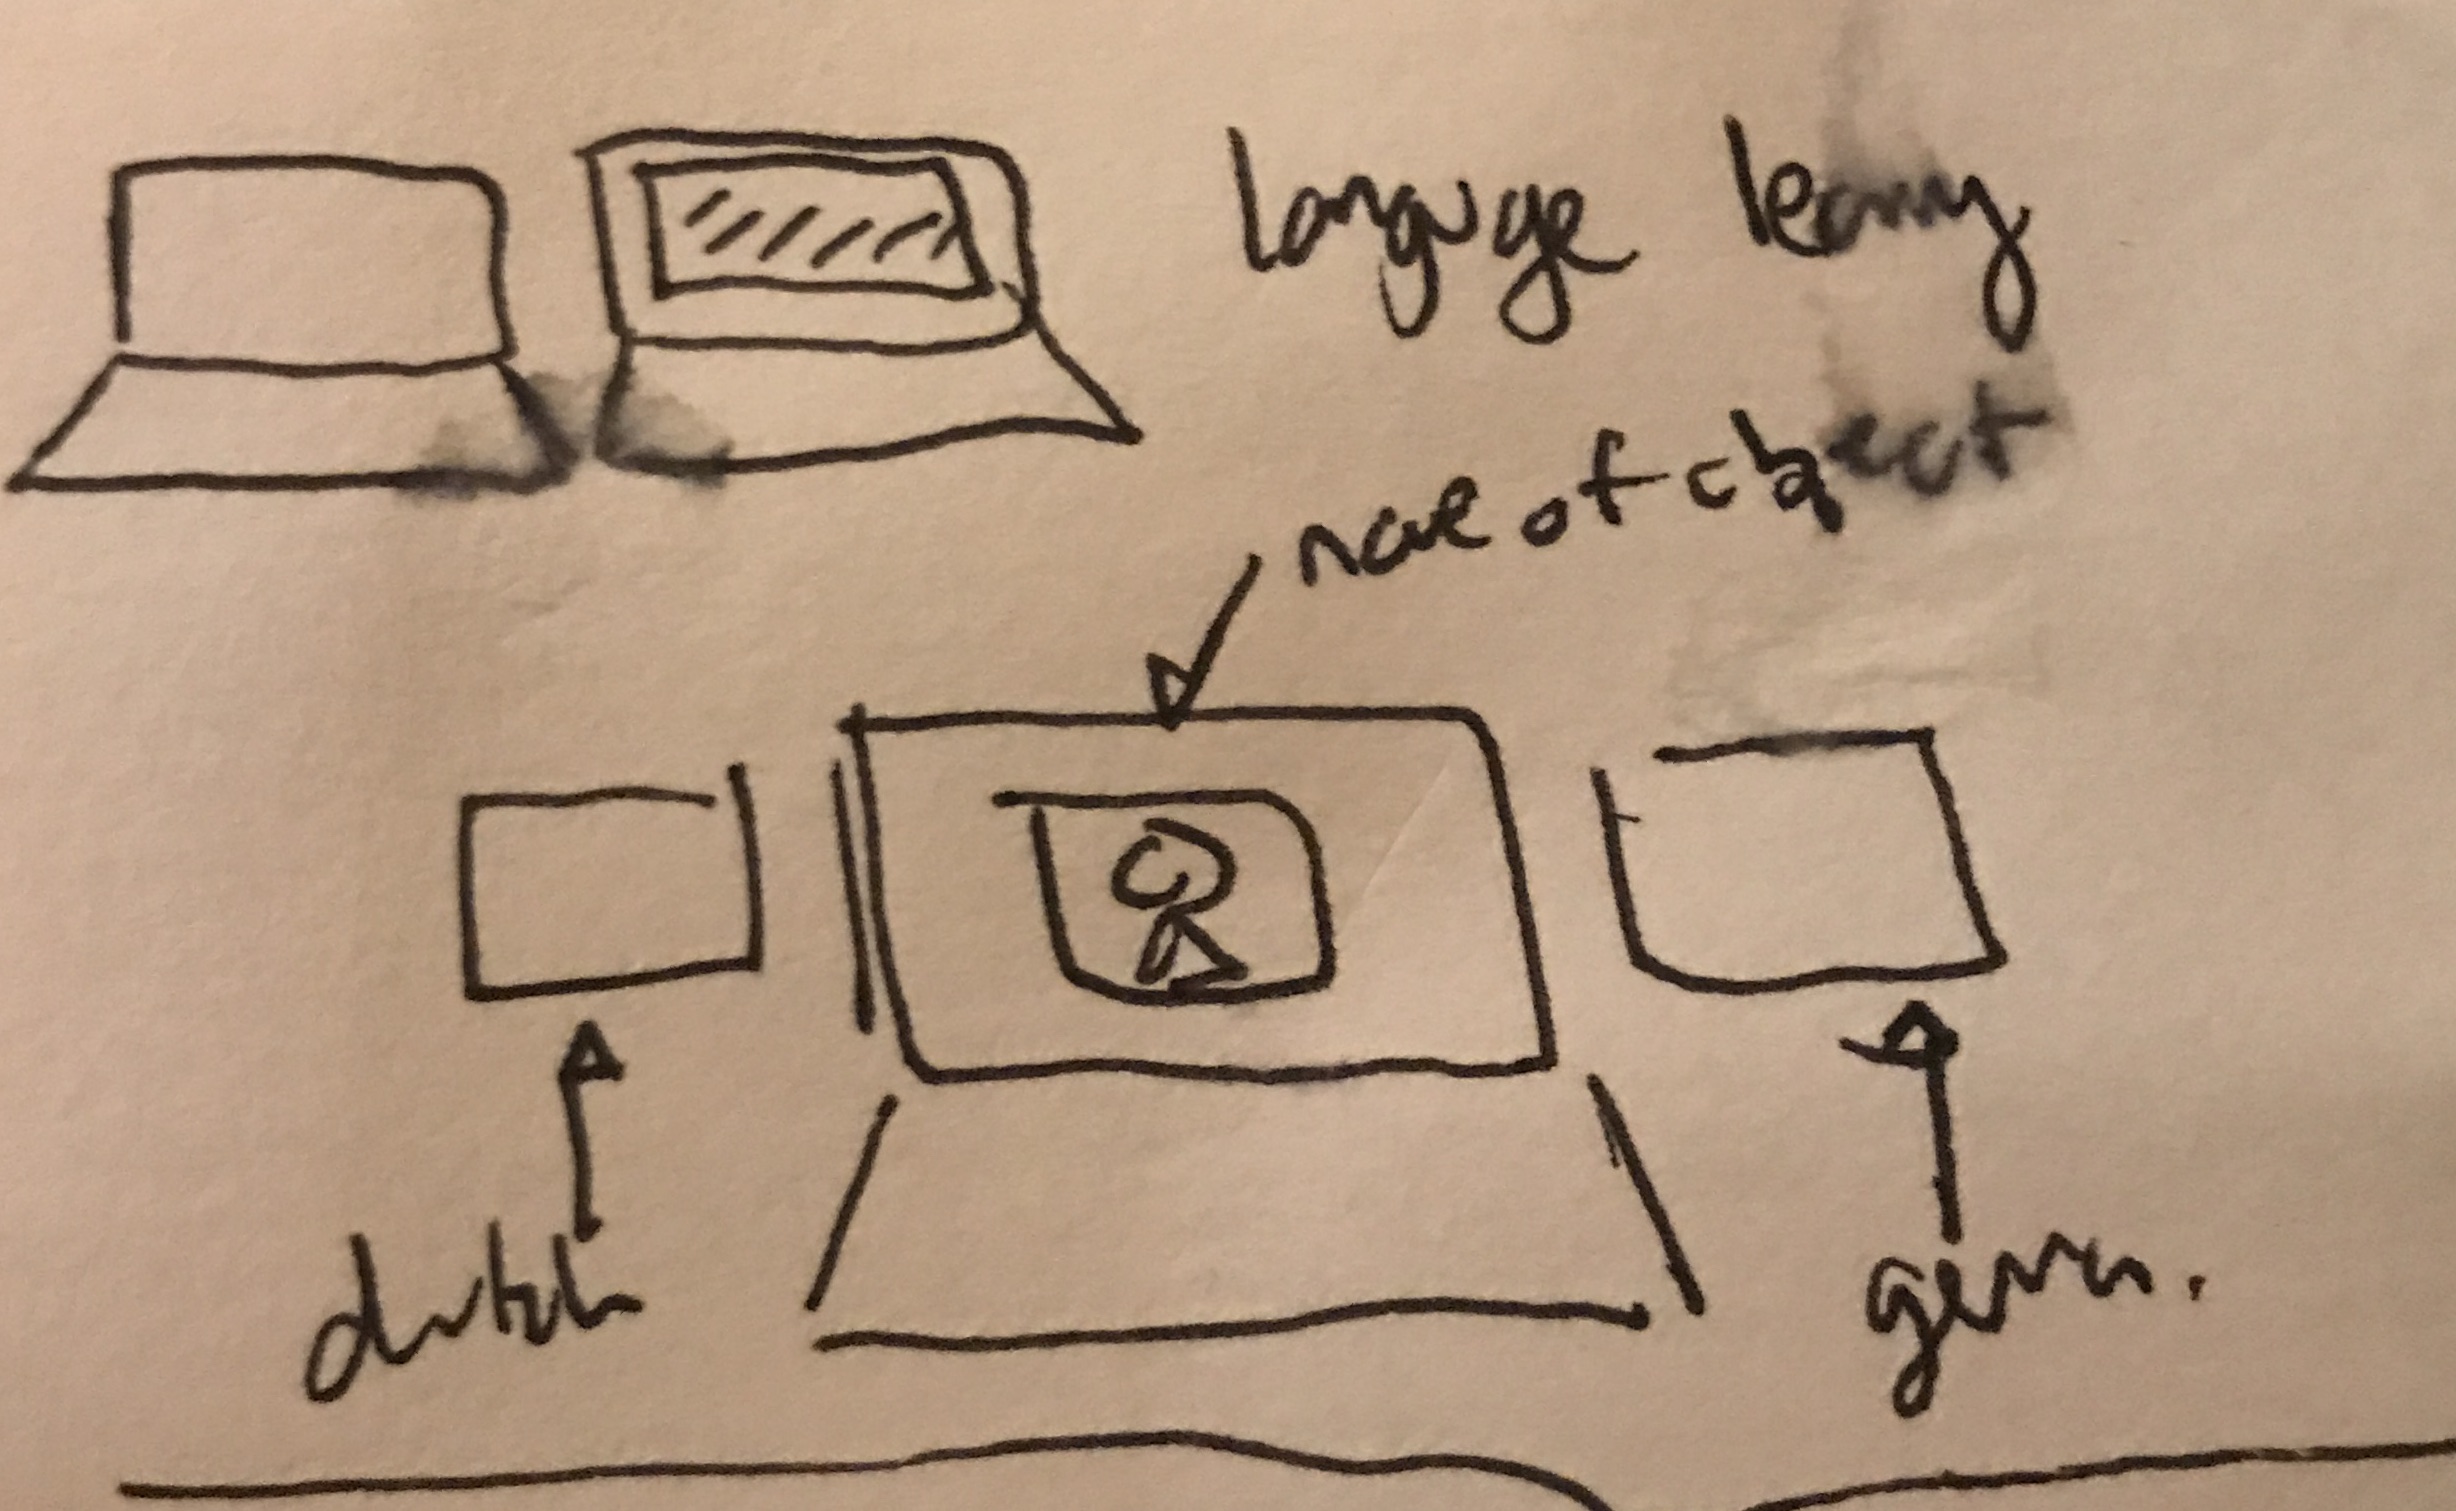 language learning
name of object
dutch
german.